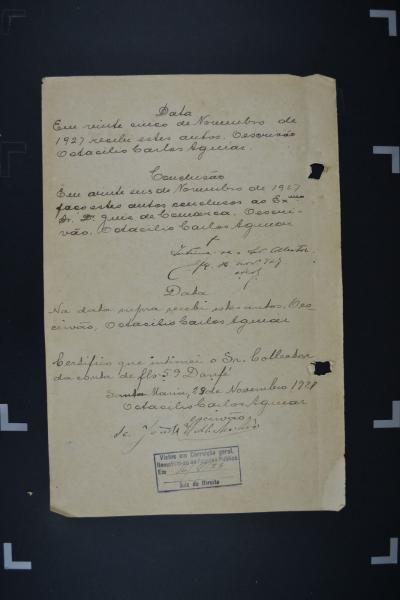 Data
Em vinte cinco de Novembro de
1927 recebi estes autos. O escrivão
Octacilio Carlos Aguiar.
Conclusão
Em vinte seis de Novembro de 1927
faço estes autos conclusos ao Exmo
Sr. Dr. Juiz de Comarca. O escri-
vão, Octacilio Carlos Aguiar
Intime-se o Sr Collector.
26 nov 927
Data
Na data supra recebi estes autos. O es-
crivão, Octacilio Carlos Aguiar
Certifico que intimei o Sr. Collector
da conta de fls 59 Dou fé
Santa Maria, 29 de Novembro 1927
Octacilio Carlos Aguiar
escrivão
Visto em Correição geral.
Em
Juiz de Direito